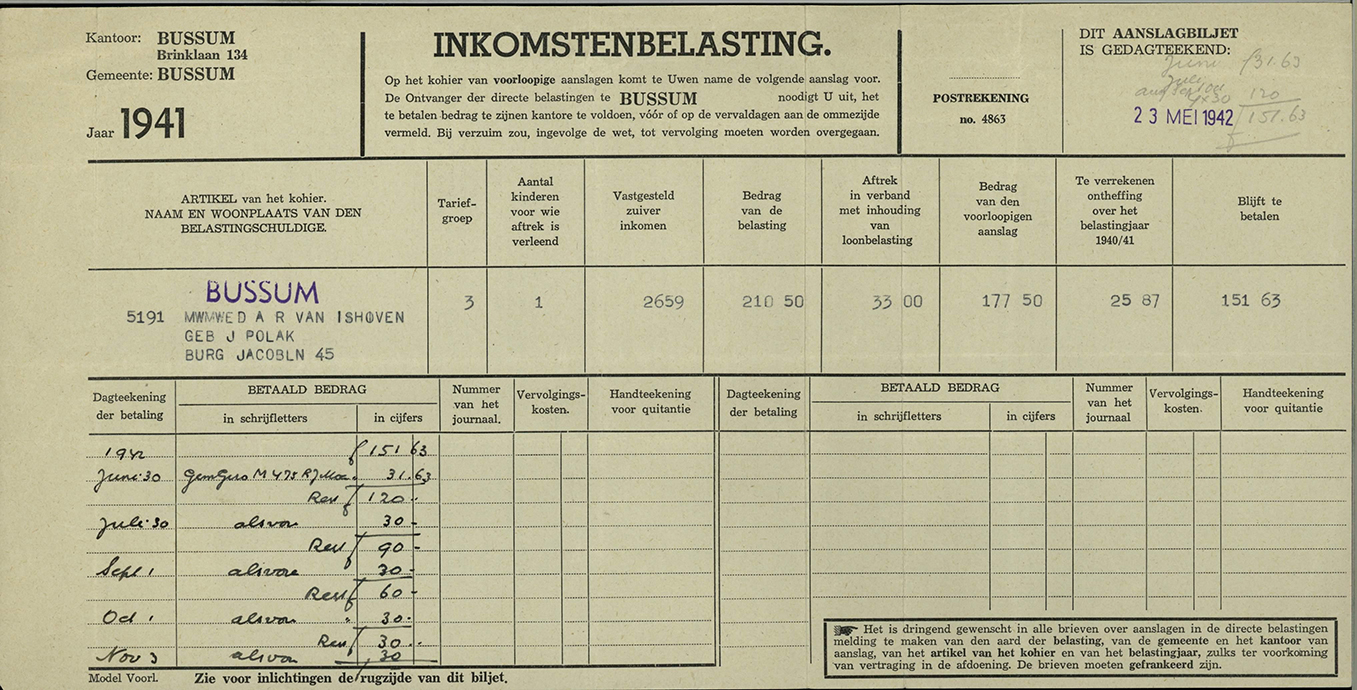 Kantoor: BUSSUM
Brinklaan 134
Gemeente: BUSSUM
Jaar 1941
INKOMSTENBELASTING.
Op het kohier van voorloopige aanslagen komt te Uwen name de volgende aanslag voor.
De Ontvanger der directe belastingen te BUSSUM noodigt U uit, het
te betalen bedrag te zijnen kantore te voldoen, vóór of op de vervaldagen aan de ommezijde
vermeld. Bij verzuim zou, ingevolge de wet, tot vervolging moeten worden overgegaan.
POSTREKENING
no. 4863
DIT AANSLAGBILJET
IS GEDAGTEEKEND:
Juni f 31.63
Juli
4x30 120
23 MEI 1942 151.63
ARTIKEL van het kohier.
NAAM EN WOONPLAATS VAN DEN
BELASTINGSCHULDIGE.
Tarief-
groep
Aantal
kinderen
voor wie
aftrek is
verleend
Vastgesteld
zuiver
inkomen
Bedrag
van de
belasting
Aftrek
in verband
met inhouding
van
loonbelasting
Bedrag
van den
voorloopigen
aanslag
Te verrekenen
ontheffing
over het
belastingjaar
1940/41
Blijft te
betalen
BUSSUM
5191 MWMWED A R VAN ISHOVEN
GEB J POLAK
BURG JACOBLN 45
3 1 2659 210 50 33 00 177 50 25 87 151 63
Dagteekening
der betaling
BETAALD BEDRAG
in schrijfletters in cijfers
Nummer
van het
journaal.
Vervolgings-
kosten.
Handteekening
voor quitantie
Dagteekening
der betaling
BETAALD BEDRAG
in schrijfletters in cijfers
Nummer
van het
journaal
Vervolgings-
kosten.
Handteekening
voor quitantie
1942 f 151 63
Juni 30 Gem Giro M 475 31.63
Rest f 120 -
Juli 30 alsvoren 30 -
Rest f 90 -
Sept 1 alsvoren 30 -
Rest f 60 -
Oct 1 alsvoren 30 -
Rest f 30 -
Nov 3 alsvoren 30
Het is dringend gewenscht in alle brieven over aanslagen in de directe belastingen
melding te maken van den aard der belasting, van de gemeente en het kantoor van
aanslag, van het artikel van het kohier en van het belastingjaar, zulks ter voorkoming
van vertraging in de afdoening. De brieven moeten gefrankeerd zijn.
Model Voorl. Zie voor inlichtingen de rugzijde van dit biljet.